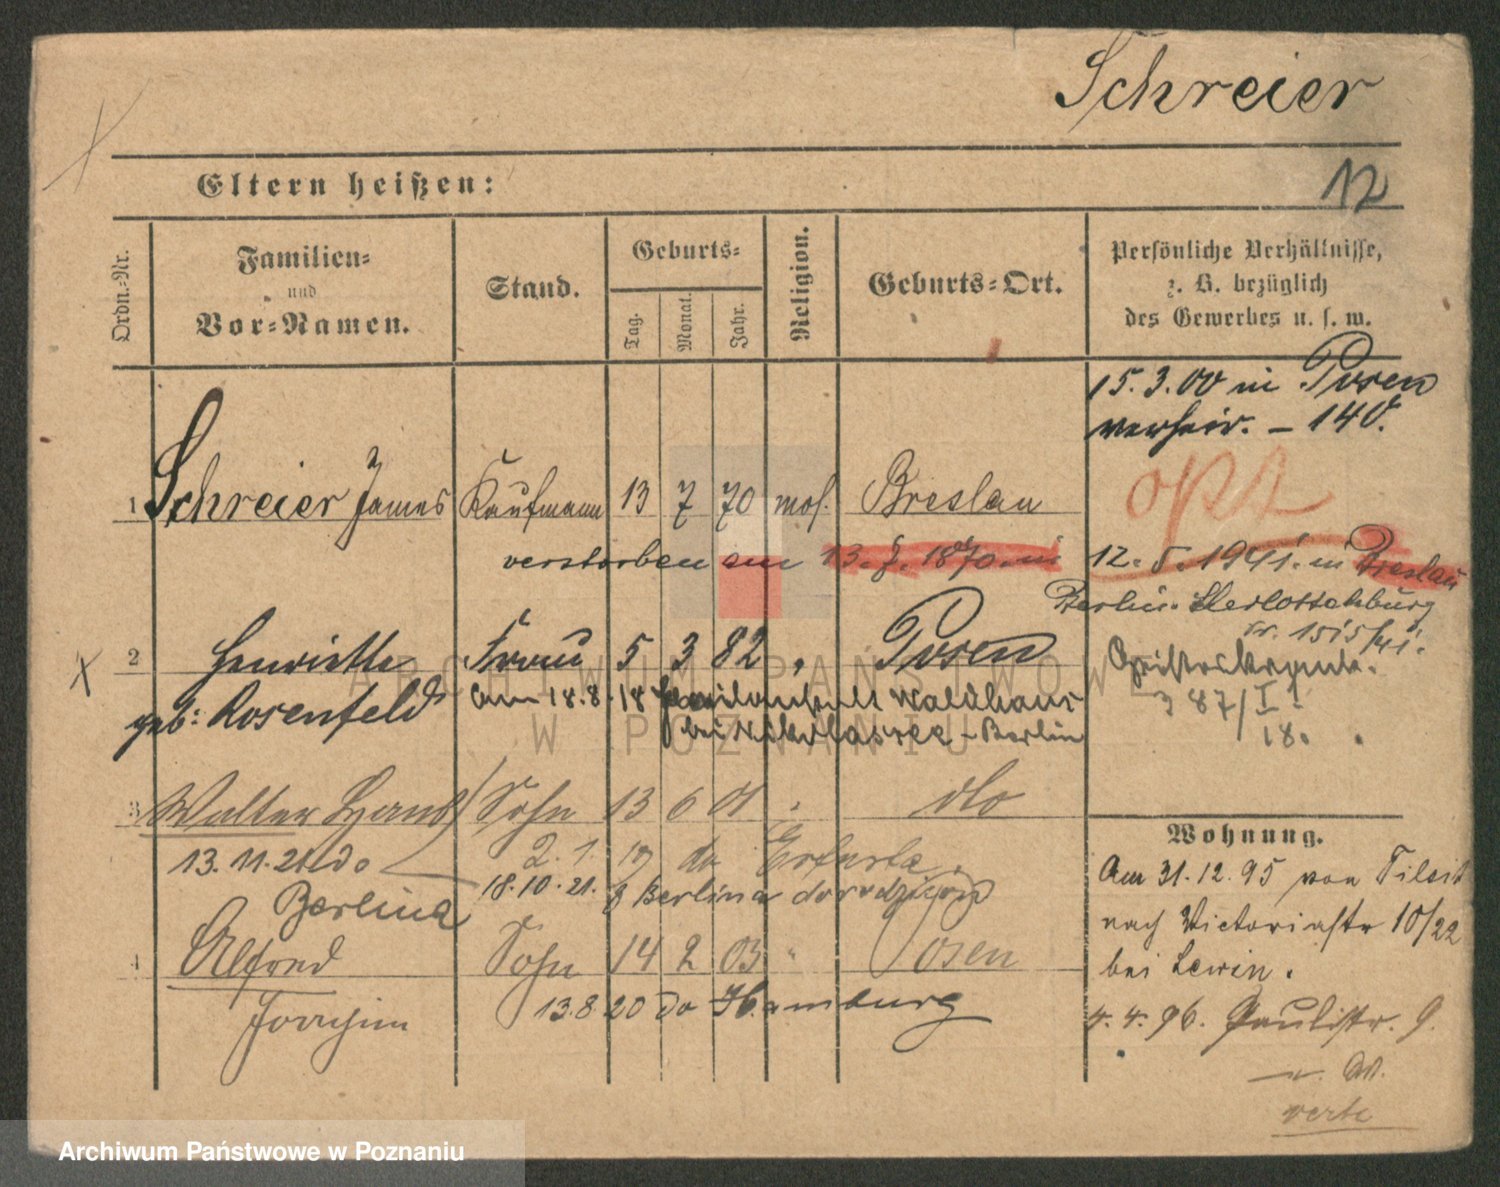 Schreier
12
Eltern heißen:
Ordn.-Nr.
Familien-
und
Vor-Namen.
Stand.
Geburts-
Tag.
Monat.
Jahr.
Religion.
Geburts-Ort.
Persönliche Verhältnisse,
z. B. bezüglich
des Gewerbes u. s. w.
15.3.00 in Posen
verheir. - 140.
opt
1 Schreier James Kaufmann 13 7 70 mos. Breslau
verstorben am 13.7.1870. in 12.5.1941. in Breslau
Berlin-
1515/41.
2 Henriette Frau 5 3 82 " Posen
geb: Rosenfeld
am 18.8.18 Waldhaus
bei Nikolassee-Berlin
87/I
18.
3 Walter Hans Sohn 13 6 01 " dto
13.11.21 do
Berlina
2.1. 19 do Erfurta.
18.10.21. z Berlina
4 Alfred Sohn 14 2 03 " Posen
Joachim
13.8.20 do Hamburg
Wohnung.
Am 31.12.95 von Tilsit
nach Victoriastr 10/22
bei Lewin.
4.4.96. Paulistr. 9.
verte
ARCHIWUM PAŃSTWOWE
W POZNANIU
Archiwum Państwowe w Poznaniu